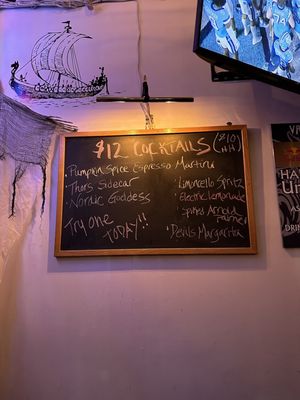 $12 COCKTAILS ($10 HH)
• Pumpkin Spice Espresso Martini
• Thors Sidecar
• Nordic Goddess
Try One
TODAY!!
• Limoncello Spritz
• Electric Lemonade
• Spiked Arnold
Palmer
• Devils Margarita
HA